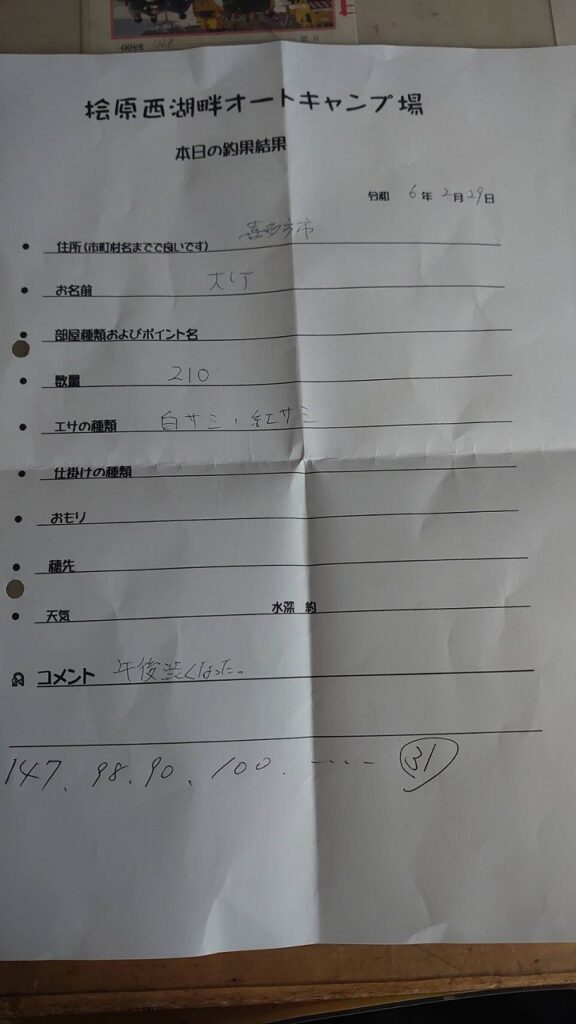 桧原西湖畔オートキャンプ場
本日の釣果結果
令和 6年 2月 29日
● 住所(市町村名までで良いです) 喜多方市
● お名前
● 部屋種類およびポイント名
● 数量 210
● エサの種類 白サミ、紅サミ
● 仕掛けの種類
● おもり
● 穂先
● 天気 水深 約
コメント 午後渋くなった。
147、98、90、100、---- ㉛